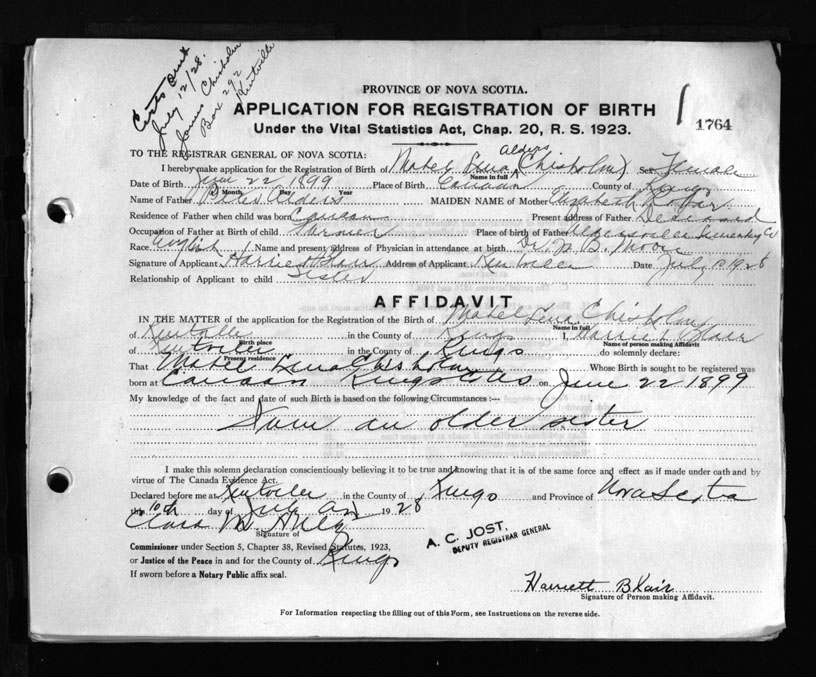 Certs sent
July 12/28.
James Chisholm
Box 292
Kentville
PROVINCE OF NOVA SCOTIA.
APPLICATION FOR REGISTRATION OF BIRTH
1764
Under the Vital Statistics Act, Chap. 20, R. S. 1923.
TO THE REGISTRAR GENERAL OF NOVA SCOTIA:
Alders
I hereby make application for the Registration of Birth of Mabel Lena (Chisholm) Sex Female
Name in full
Date of Birth June 22 1899 Place of Birth Canaan County of Kings
Month Day Year
Name of Father Alders MAIDEN NAME of Mother Elizabeth
Residence of Father when child was born Canaan Present address of Father Deceased
Occupation of Father at Birth of child Farmer Place of birth of Father Aldersville Lunenburg Co
Race English Name and present address of Physician in attendance at birth Dr. B. Moore
Signature of Applicant Harriet Blair Address of Applicant Kentville Date July 10 1928
Relationship of Applicant to child Sister
AFFIDAVIT
IN THE MATTER of the application for the Registration of the Birth of Mabel Lena Chisholm
Name in full
of Kentville in the County of Kings I, Harriet Blair
Birth place Name of person making Affidavit
of Kentville in the County of Kings do solemnly declare:
Present residence
That Mabel Lena Chisholm Whose Birth is sought to be registered was
born at Canaan Kings Co NS on June 22 1899
My knowledge of the fact and date of such Birth is based on the following Circumstances :—
I am an older sister
I make this solemn declaration conscientiously believing it to be true and knowing that it is of the same force and effect as if made under oath and by
virtue of The Canada Evidence Act.
Declared before me at Kentville in the County of Kings and Province of Nova Scotia
the 10th day of July AD 1928
Clara M
Signature of
Commissioner under Section 5, Chapter 38, Revised Statutes, 1923,
or Justice of the Peace in and for the County of Kings
If sworn before a Notary Public affix seal.
A. C. JOST,
DEPUTY REGISTRAR GENERAL
Harriett Blair
Signature of Person making Affidavit.
For Information respecting the filling out of this Form, see Instructions on the reverse side.